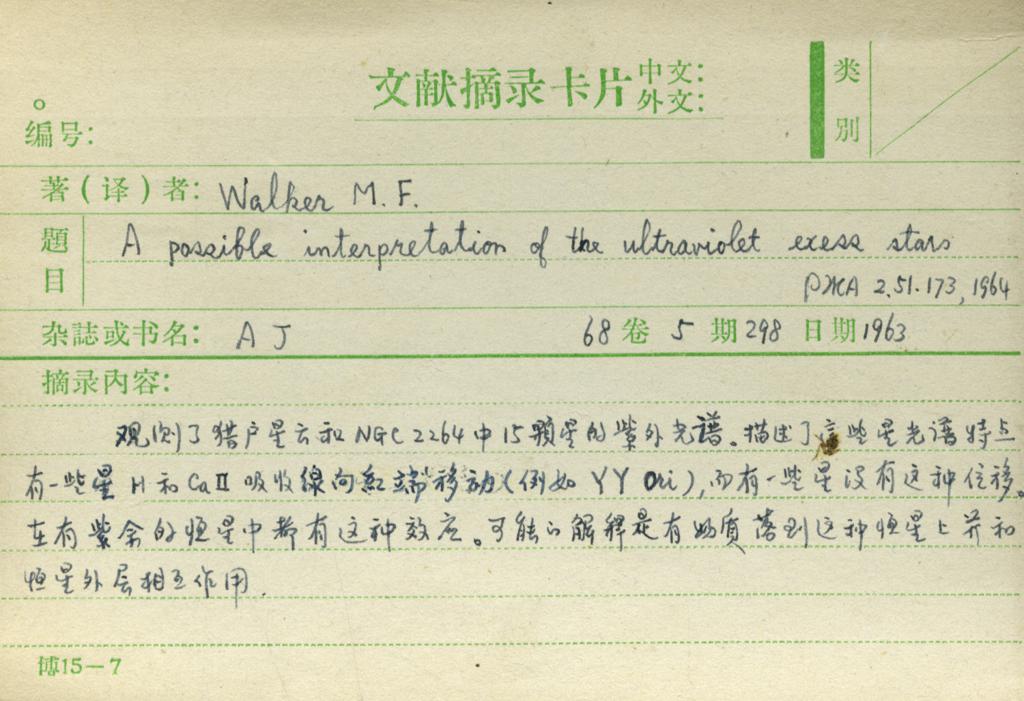 文献摘录卡片 中文:
外文:
类别
编号:
著(译)者: Walker M. F.
题目 A possible interpretation of the ultraviolet exess stars
РЖА 2.51.173, 1964
杂誌或书名: A J 68 卷 5 期 298 日期 1963
摘录内容:
观测了猎户星云和 NGC 2264 中 15 颗星的紫外光谱。描述了这些星光谱特点
有一些星 H 和 Ca II 吸收线向红端移动(例如 YY Ori), 而有一些星没有这种位移。
在有紫余的恒星中都有这种效应。可能的解释是有物质落到这种恒星上并和
恒星外层相互作用.
博15-7